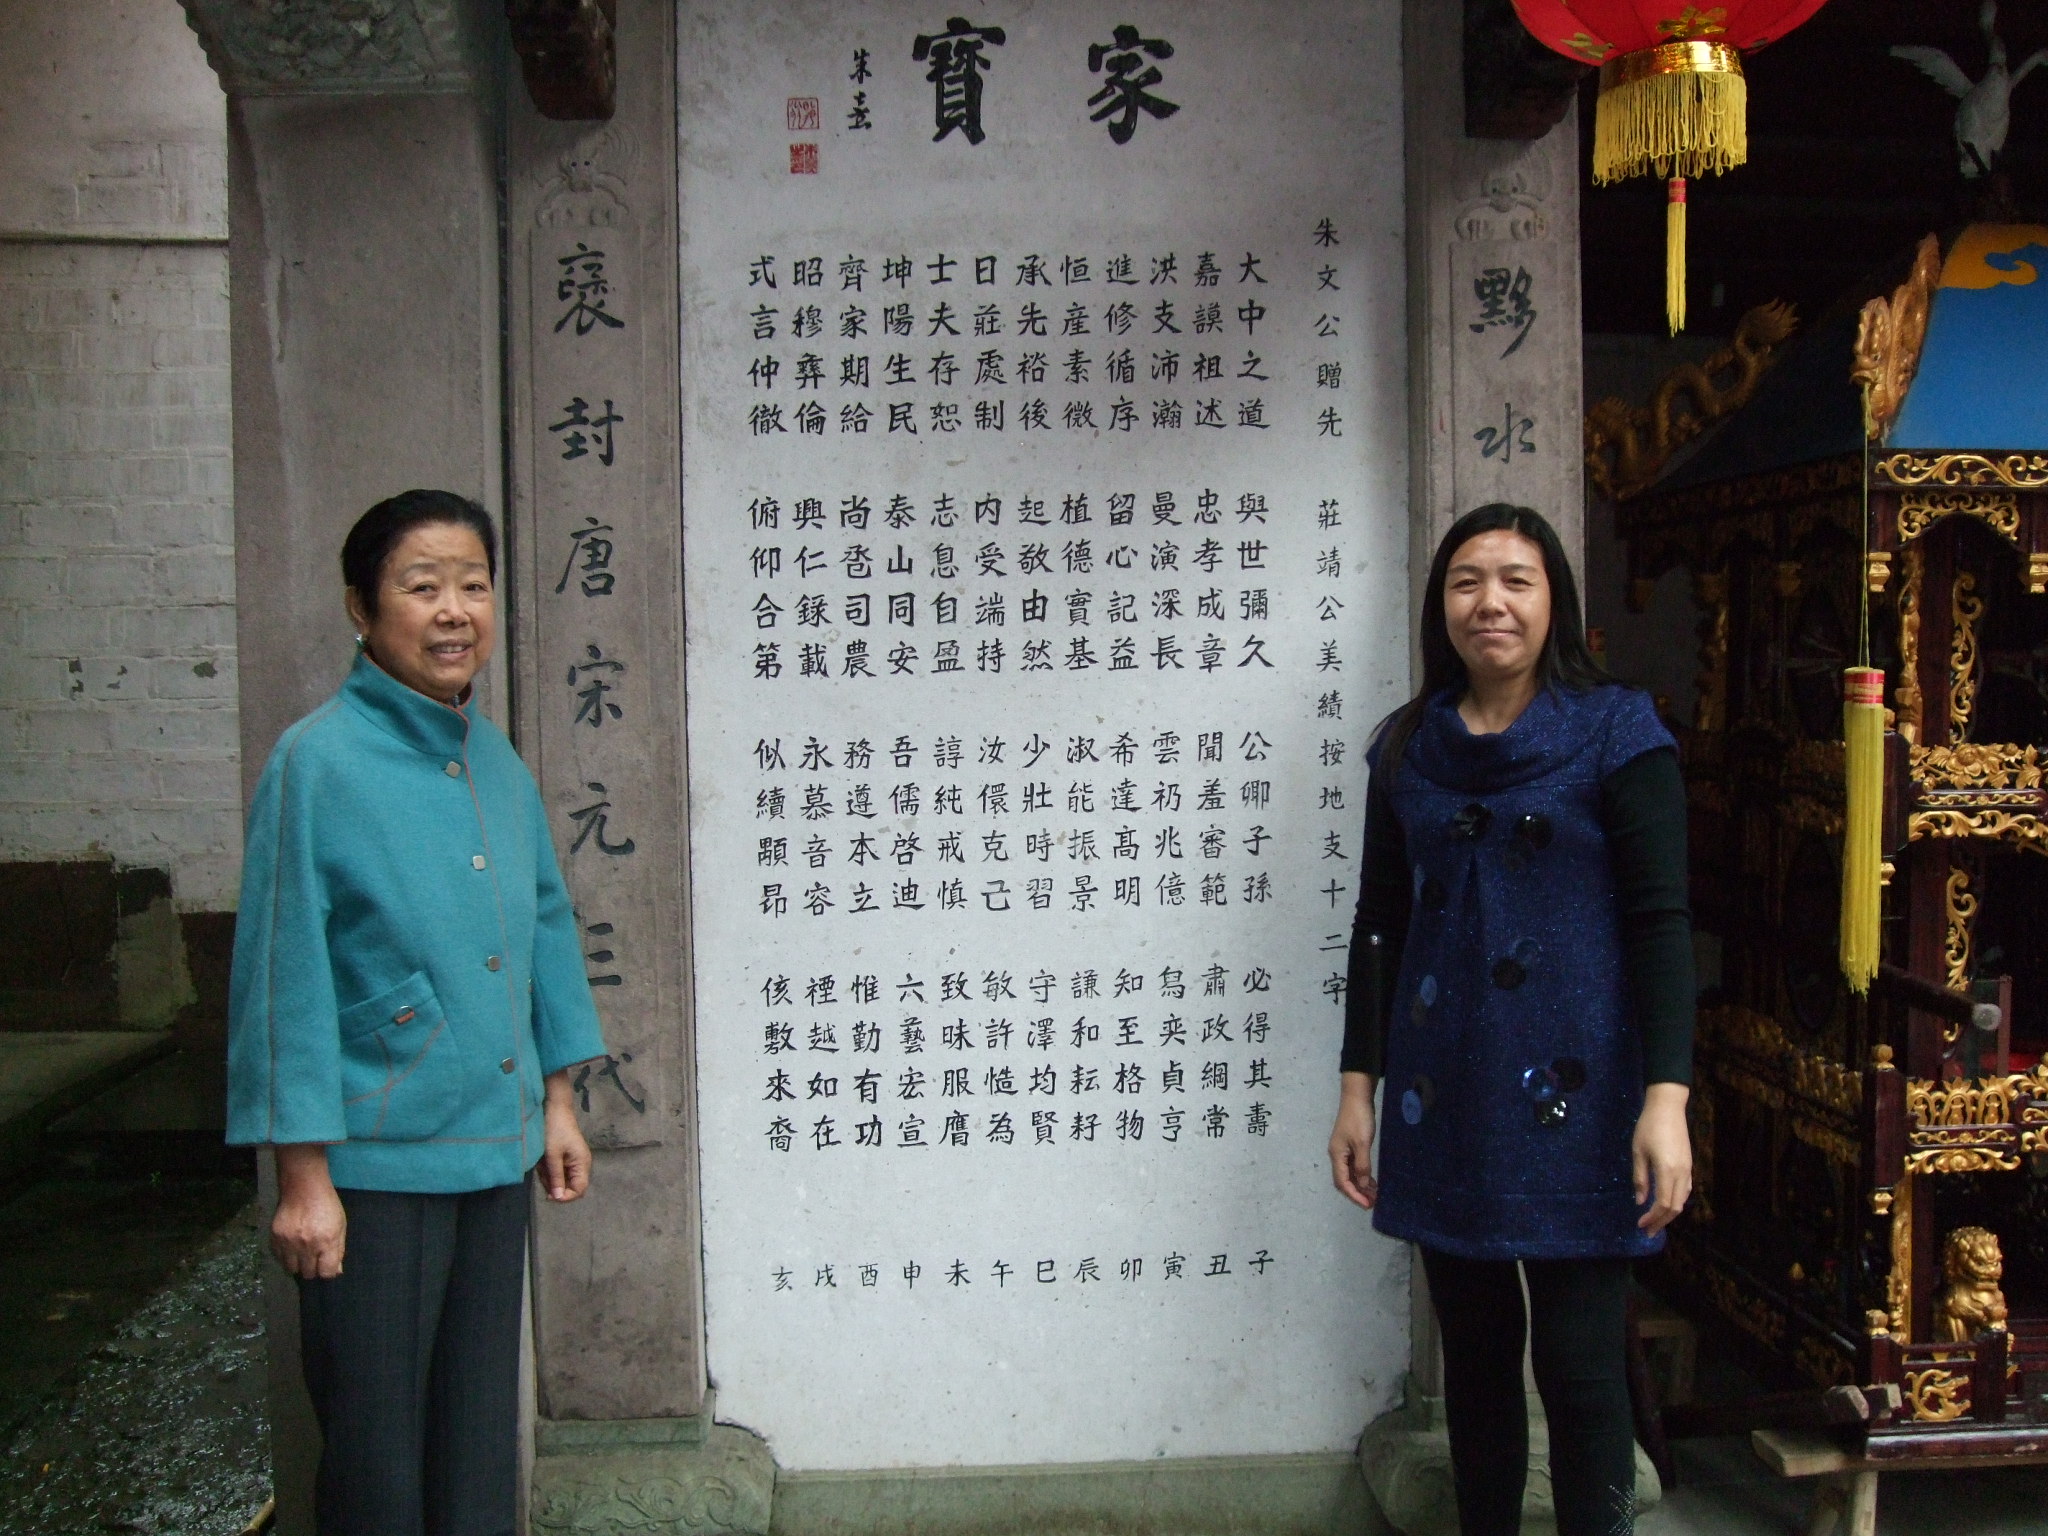 家寶
朱熹
朱文公贈先 莊靖公美績按地支十二字
大中之道 與世彌久 公卿子孫 必得其壽 子
嘉謨祖述 忠孝成章 聞羞審範 肅政綱常 丑
洪支沛瀚 曼演深長 雲礽兆億 舄奕貞亨 寅
進修循序 留心記益 希達髙明 知至格物 卯
恒産素微 植德實基 淑能振景 謙和耘耔 辰
承先裕後 起敬由然 少壯時習 守澤均賢 巳
日莊處制 内受端持 汝儇克己 敏許慥為 午
士夫存恕 志息自盈 諄純戒慎 致昧服膺 未
坤陽生民 泰山同安 吾儒啓迪 六藝宏宣 申
齊家期給 尚爸司農 務遵本立 惟勤有功 酉
昭穆彞倫 興仁錄載 永慕音容 禋越如在 戌
式言仲徹 俯仰合第 似續顒昂 侅敷來裔 亥
黟水
褒封唐宋元三代